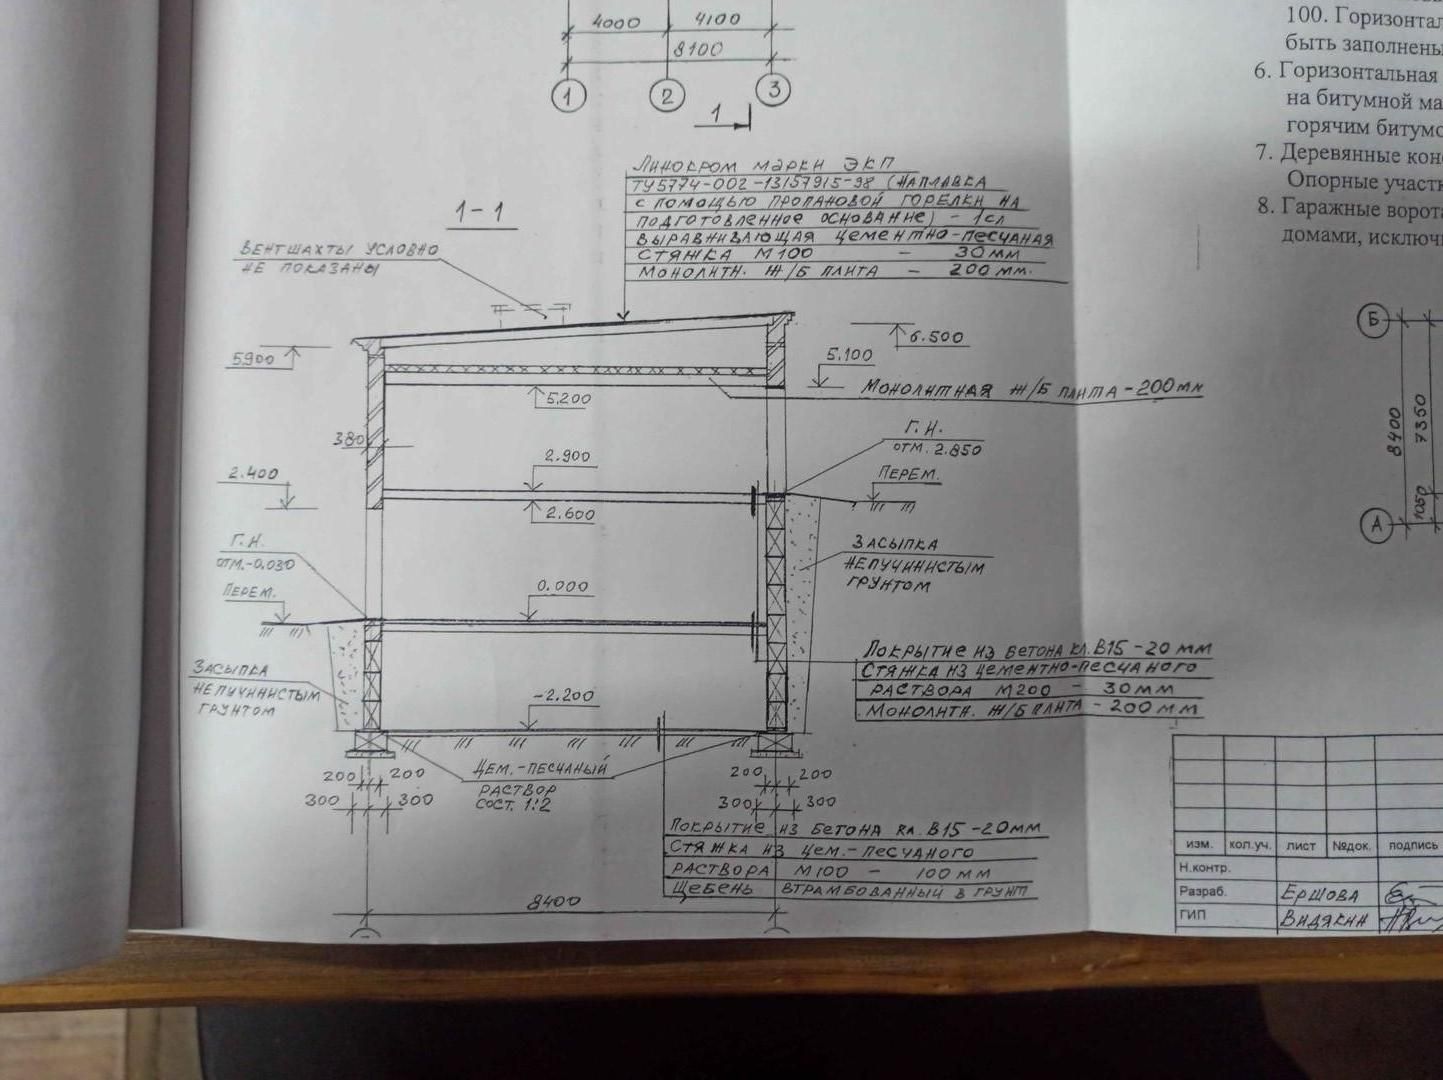 4000
4100
8100
1
2
3
1
1-1
ВЕНТШАХТЫ УСЛОВНО
НЕ ПОКАЗАНЫ
ЛИНОКРОМ МАРКИ ЭКП
ТУ5774-002-13157915-98 (НАПЛАВКА
С ПОМОЩЬЮ ПРОПАНОВОЙ ГОРЕЛКИ НА
ПОДГОТОВЛЕННОЕ ОСНОВАНИЕ) - 1СЛ
ВЫРАВНИВАЮЩАЯ ЦЕМЕНТНО-ПЕСЧАНАЯ
СТЯЖКА М100 - 30ММ
МОНОЛИТН. Ж/Б ПЛИТА - 200 ММ.
5.900
6.500
5.100
5.200
МОНОЛИТНАЯ Ж/Б ПЛИТА - 200 ММ
380
Г.Н.
ОТМ. 2.850
2.900
2.400
ПЕРЕМ.
2.600
Г.Н.
ОТМ.-0.030
ЗАСЫПКА
НЕПУЧИНИСТЫМ
ГРУНТОМ
0.000
ПЕРЕМ.
ПОКРЫТИЕ ИЗ БЕТОНА КЛ. В15 - 20 ММ
СТЯЖКА ИЗ ЦЕМЕНТНО-ПЕСЧАНОГО
РАСТВОРА М200 - 30ММ
МОНОЛИТН. Ж/Б ПЛИТА - 200 ММ
ЗАСЫПКА
НЕПУЧИНИСТЫМ
ГРУНТОМ
-2.200
ЦЕМ.-ПЕСЧАНЫЙ
РАСТВОР
СОСТ. 1:2
200 200
300 300
200 200
300 300
ПОКРЫТИЕ ИЗ БЕТОНА КЛ. В15 - 20ММ
СТЯЖКА ИЗ ЦЕМ.-ПЕСЧАНОГО
РАСТВОРА М100 - 100 ММ
ЩЕБЕНЬ ВТРАМБОВАННЫЙ В ГРУНТ
8400
100. Горизонтал
быть заполнены
6. Горизонтальная
на битумной ма
горячим битумо
7. Деревянные кон
Опорные участк
8. Гаражные ворота
домами, исключ
Б
8400
7350
1050
А
изм. кол.уч. лист №док. подпись
Н.контр.
Разраб. ЕРШОВА
ГИП ВИДЯКИН